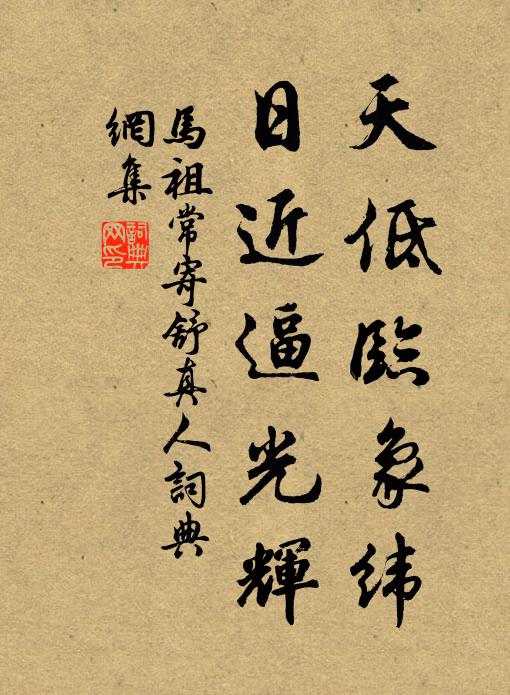 天低臨象緯
日近逼光輝
馬祖常寄舒真人詞典
網集
詞典
网印